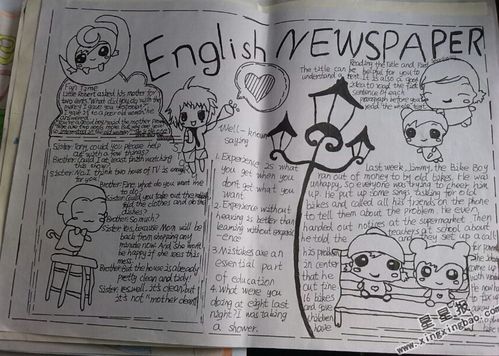 English NEWSPAPER
Fun Time
Little Robert asked his mother for
two cents. "What did you do with the
money I gave you yesterday?"
"I gave it to a poor old woman,"
answered.
Sister: Tony, could you please help
me with a few things?
Brother: Could I at least finish watching
this show?
Sister: No. I think two hours of TV is enough
for you.
Brother: Fine. What do you want me
to do?
Sister: Could you take out the rubbish,
fold the clothes and do the
dishes?
Brother: So much?
Sister: Yes, because Mom will be
back from shopping any
minute now. And she won't
be happy if she sees this
mess.
Brother: But the house is already
pretty clean and tidy!
Sister: Yes, well, it's clean, but
it's not "mother clean"!
Well-known
saying
1. Experience is what
you get when you
don't get what you
want
2. Experience without
learning is better than
learning without experi
ence
3. Mistakes are an
essential part
of education
4. What were you
doing at eight last
night? I was taking
a shower.
Reading the title and
The title can be helpful for you to
understand a text. It is also a good
idea to read the first
sentence of each
paragraph before you
read the whole text.
Last week, Jimmy, the Bike Boy
ran out of money to buy old bikes. He was
unhappy. So everyone was trying to cheer him
up. He put up some signs asking for old
bikes and called all his friends on the phone
to tell them about the problem. He even
handed out notices at the supermarket. Then
he told the teachers at school about
his problem and they set up a call
in center
that he
out fine
16 bikes
and gave
children
have
星星报
www.xingxingbao.com